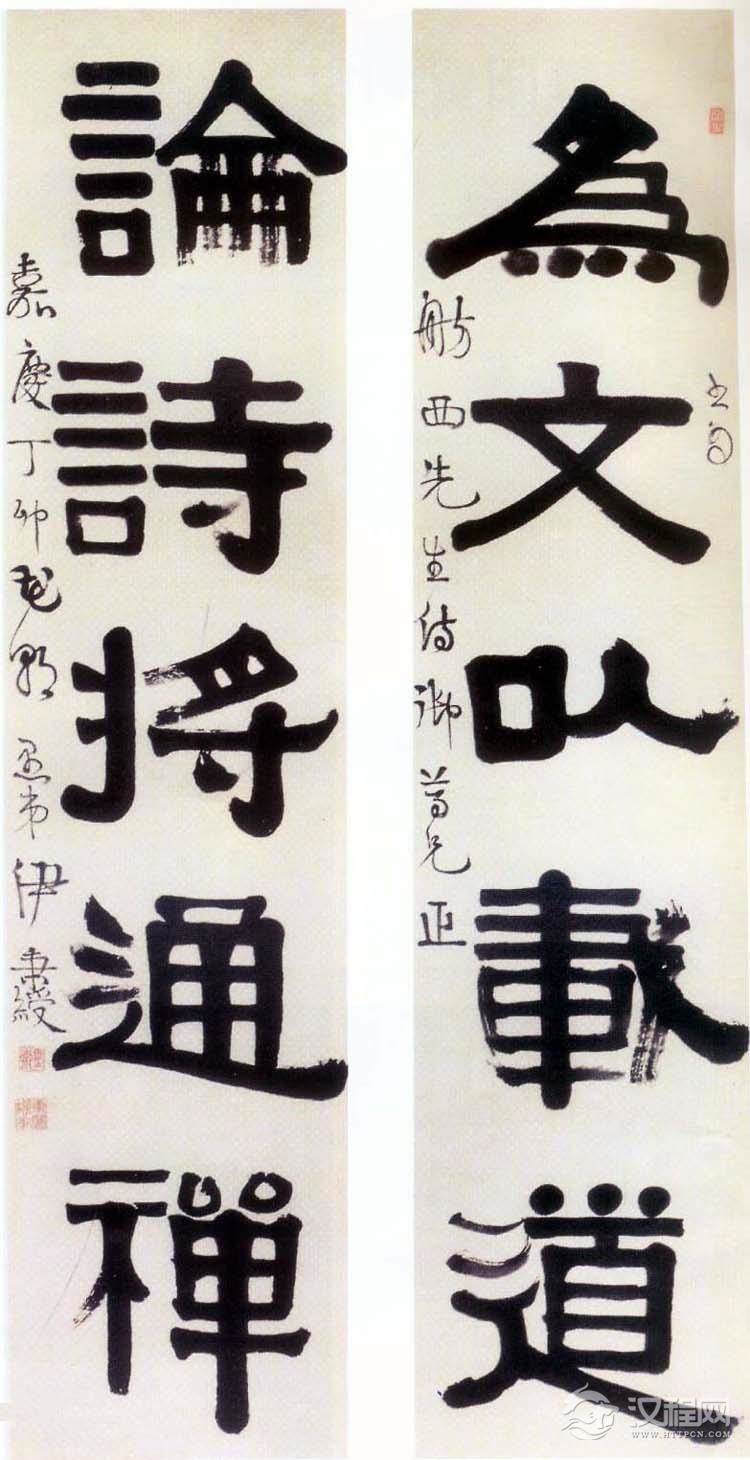 為文以載道
書句
舫西先生侍御尊兄正
論詩將通禪
嘉慶丁卯花朝愚弟伊秉綬
汉程网
WWW.HTTPCN.COM